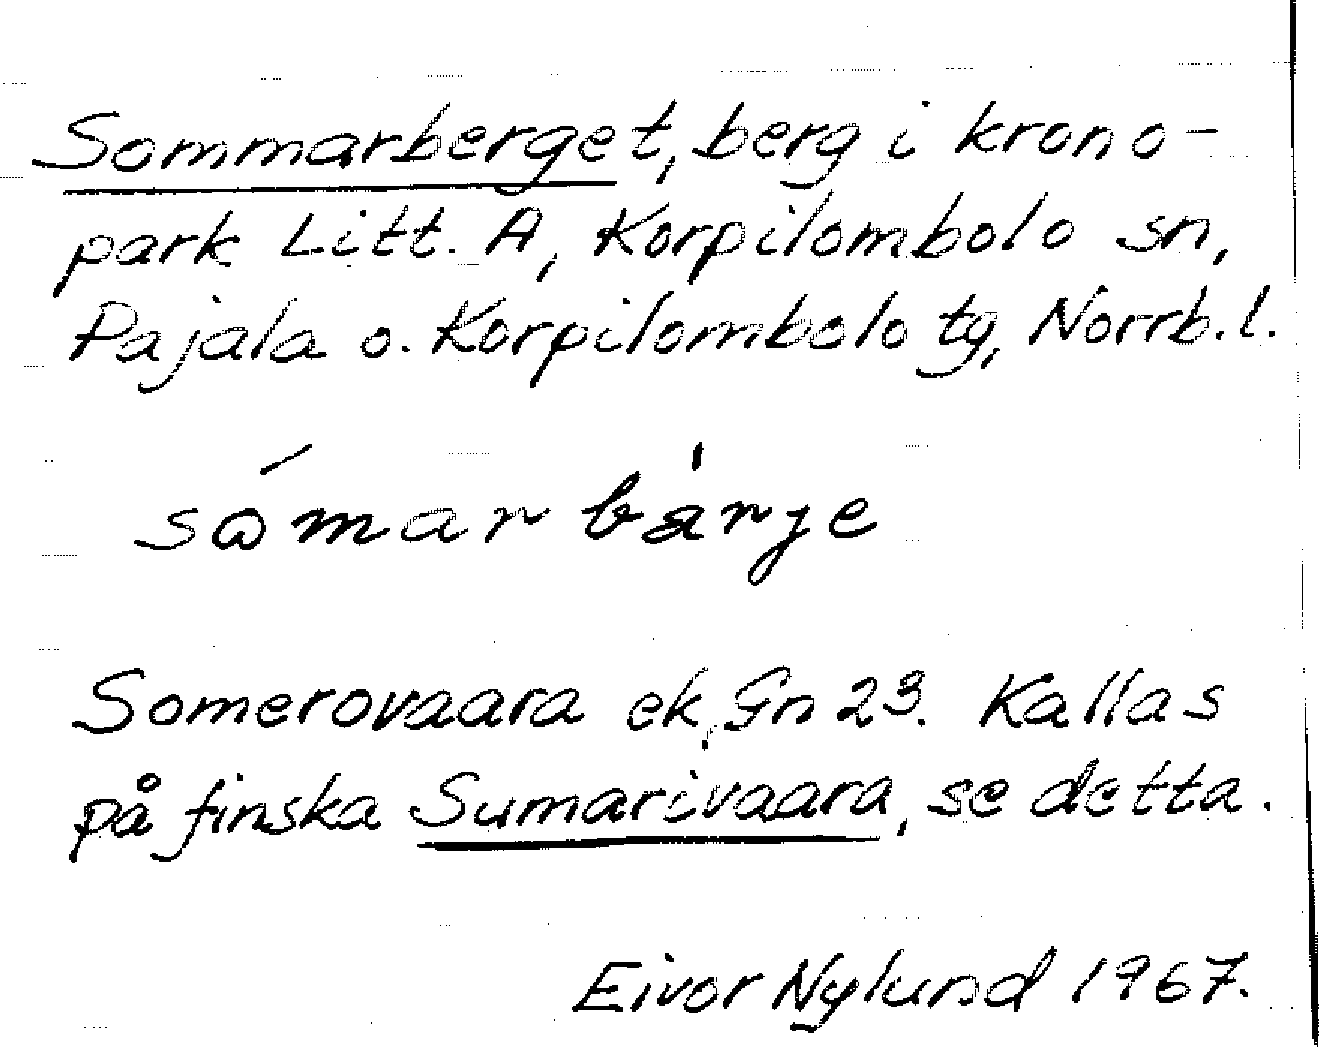 Sommarberget, berg i krono-
park Litt. A, Korpilombolo sn,
Pajala o. Korpilombolo tg, Norrb.l.
såmarbärje
Somerovaara ek, Gn 23. Kallas
på finska Sumarivaara, se detta.
Eivor Nylund 1967.